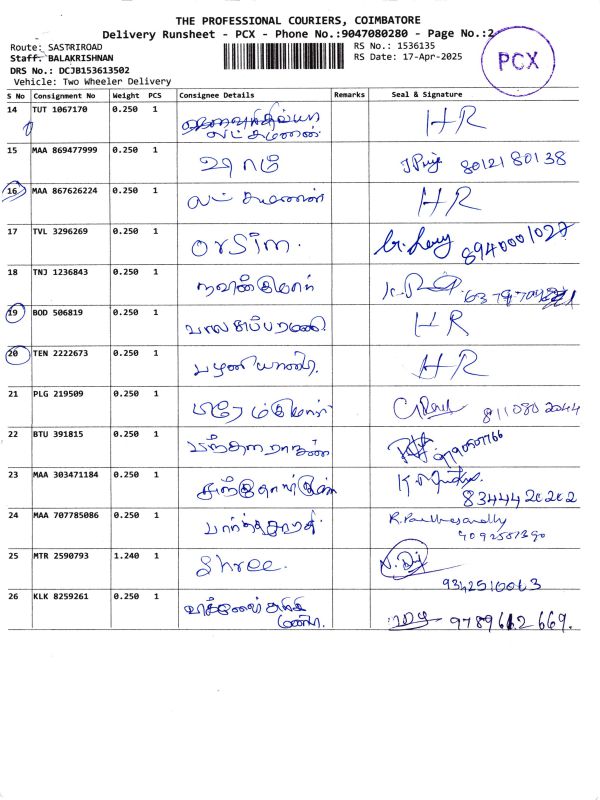 THE PROFESSIONAL COURIERS, COIMBATORE
Delivery Runsheet - PCX - Phone No.:9047080280 - Page No.:2
Route: SASTRIROAD
RS No.: 1536135
Staff: BALAKRISHNAN
RS Date: 17-Apr-2025
DRS No.: DCJB153613502
Vehicle: Two Wheeler Delivery
PCX
S No Consignment No Weight PCS Consignee Details Remarks Seal & Signature
14 TUT 1067170 0.250 1 லட்சுமணன் HR
15 MAA 869477999 0.250 1 ஸ்ரீ ராம் 80121 80138
16 MAA 867626224 0.250 1 லட்சுமணன் HR
17 TVL 3296269 0.250 1 Orsim. 8940001027
18 TNJ 1236843 0.250 1 நவீன்குமார்
19 BOD 506819 0.250 1 பாலசுப்பரமணி HR
20 TEN 2222673 0.250 1 பழனியாண்டி. HR
21 PLG 219509 0.250 1 811080 2044
22 BTU 391815 0.250 1
23 MAA 303471184 0.250 1 83444 20202
24 MAA 707785086 0.250 1 பார்த்தசாரதி R. Parthasarathy
25 MTR 2590793 1.240 1 Shree.
9342510063
26 KLK 8259261 0.250 1 9789612 669.